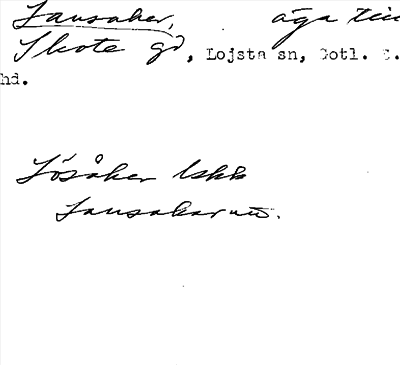 Lausaker, äga till
Skote gd, Lojsta sn, Gotl. S.
hd.
Lösåker lskk
Lausakar un.